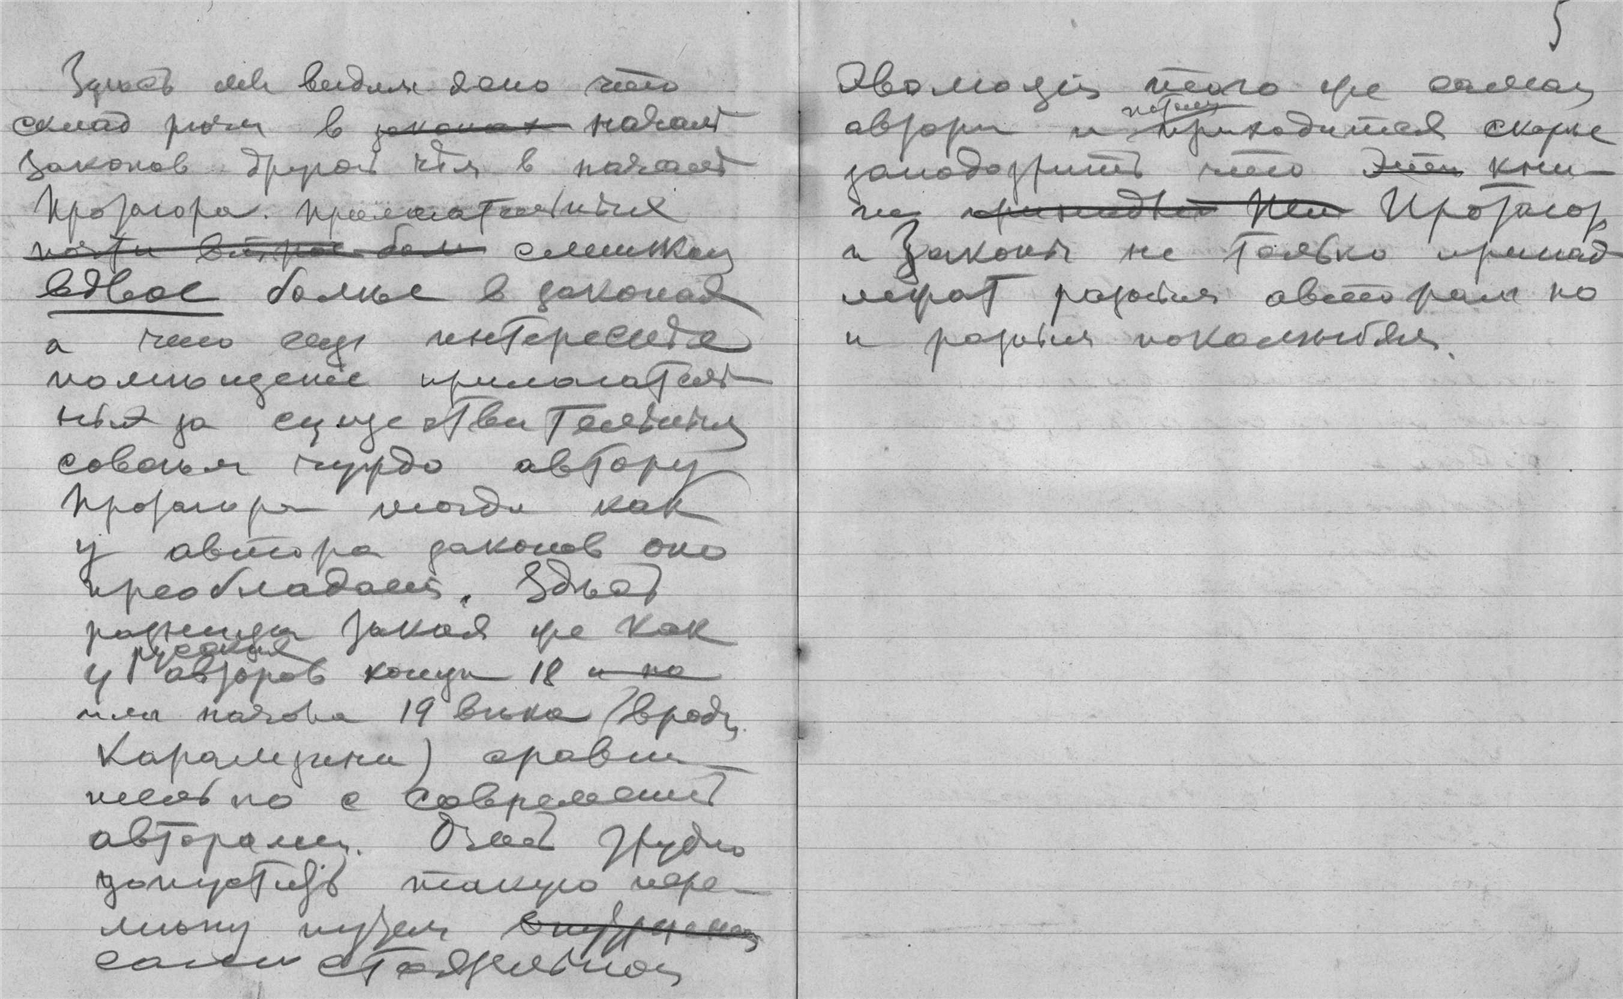 Здесь мы видим ясно что
склад речи в законах начале
Законов другой чем в начале
Протагора. Прилагательных
почти втрое боле слишком
вдвое более в законах
а что еще интереснее
помещение прилагатель
ных за существительным
совсем чуждо автору
Протагора тогда как
у автора законов оно
преобладает. Здесь
разница такая же как
у русских авторов конца 18 и на
или начала 19 века (вроде
Карамзина) сравни
тельно с современ
авторами. Очень трудно
допустить такую пере
мену путем внутренней
самостоятельной
5
Эволюции того же самаго
автора и потому приходится скорее
заподозрить что эти кни
ги принадле Про Протагор
и Законы не только принад
лежат разным авторам но
и разным поколениям.